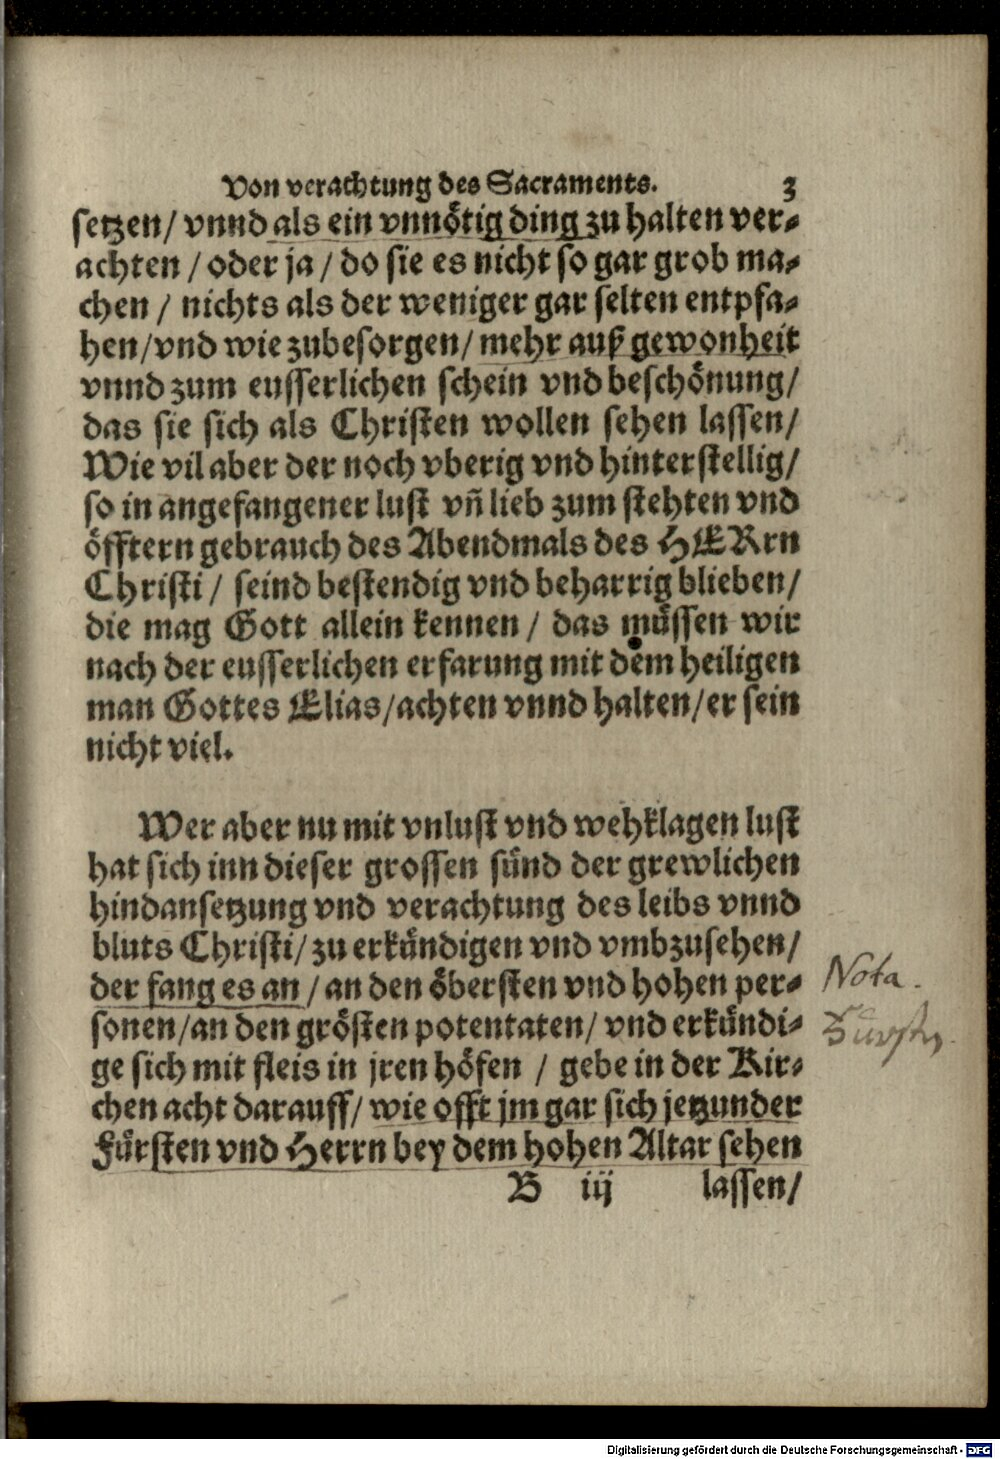 Von verachtung des Sacraments. 3
setzen/ vnnd als ein vnnötig ding zu halten ver⸗
achten / oder ja / do sie es nicht so gar grob ma⸗
chen / nichts als der weniger gar selten entpfa⸗
hen/vnd wie zubesorgen/ mehr auß gewonheit
vnnd zum eusserlichen schein vnd beschönung/
das sie sich als Christen wollen sehen lassen/
Wie vil aber der noch vberig vnd hinterstellig/
so in angefangener lust vñ lieb zum stehten vnd
öfftern gebrauch des Abendmals des HERrn
Christi / seind bestendig vnd beharrig blieben/
die mag Gott allein kennen / das müssen wir
nach der eusserlichen erfarung mit dem heiligen
man Gottes Elias/achten vnnd halten/er sein
nicht viel.
Wer aber nu mit vnlust vnd wehklagen lust
hat sich inn dieser grossen sünd der grewlichen
hindansetzung vnd verachtung des leibs vnnd
bluts Christi/ zu erkündigen vnd vmbzusehen/
der fang es an / an den öbersten vnd hohen per⸗
Nota.
sonen/an den grösten potentaten/ vnd erkündi⸗
Fürsten
ge sich mit fleis in jren höfen / gebe in der Kir⸗
chen acht darauff/ wie offt jm gar sich jetzunder
Fürsten vnd Herrn bey dem hohen Altar sehen
B iij lassen/
Digitalisierung gefördert durch die Deutsche Forschungsgemeinschaft - DFG